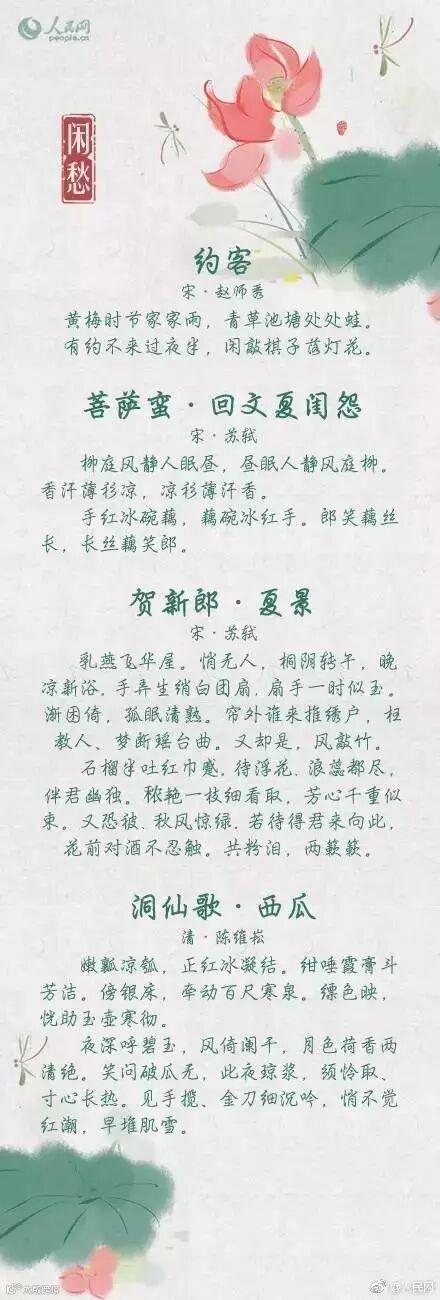 人民网
people.cn
闲愁
约客
宋·赵师秀
黄梅时节家家雨，青草池塘处处蛙。
有约不来过夜半，闲敲棋子落灯花。
菩萨蛮·回文夏闺怨
宋·苏轼
柳庭风静人眠昼，昼眠人静风庭柳。
香汗薄衫凉，凉衫薄汗香。
手红冰碗藕，藕碗冰红手。郎笑藕丝
长，长丝藕笑郎。
贺新郎·夏景
宋·苏轼
乳燕飞华屋。悄无人，桐阴转午，晚
凉新浴。手弄生绡白团扇，扇手一时似玉。
渐困倚，孤眠清熟。帘外谁来推绣户，枉
教人、梦断瑶台曲。又却是，风敲竹。
石榴半吐红巾蹙。待浮花、浪蕊都尽，
伴君幽独。秾艳一枝细看取，芳心千重似
束。又恐被、秋风惊绿。若待得君来向此，
花前对酒不忍触。共粉泪，两簌簌。
洞仙歌·西瓜
清·陈维崧
嫩瓤凉瓠，正红冰凝结。绀唾霞膏斗
芳洁。傍银床，牵动百尺寒泉。缥色映，
恍助玉壶寒彻。
夜深呼碧玉，风倚阑干，月色荷香两
清绝。笑问破瓜无，此夜琼浆，须怜取、
寸心长热。见手揽、金刀细沉吟，悄不觉
红潮，早堆肌雪。
@人民网